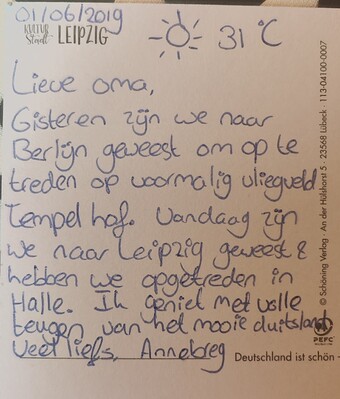 01/06/2019
KULTUR Stadt LEIPZIG
31 °C
Lieve oma,
Gisteren zijn we naar
Berlijn geweest om op te
treden op voormalig vliegveld
Tempelhof. Vandaag zijn
we naar Leipzig geweest &
hebben we opgetreden in
Halle. Ik geniet met volle
teugen van het mooie duitsland
Veel liefs, Annebreg
Deutschland ist schön -
© Schöning Verlag · An der Hülshorst 5 · 23568 Lübeck · 113-04100-0007
PEFC